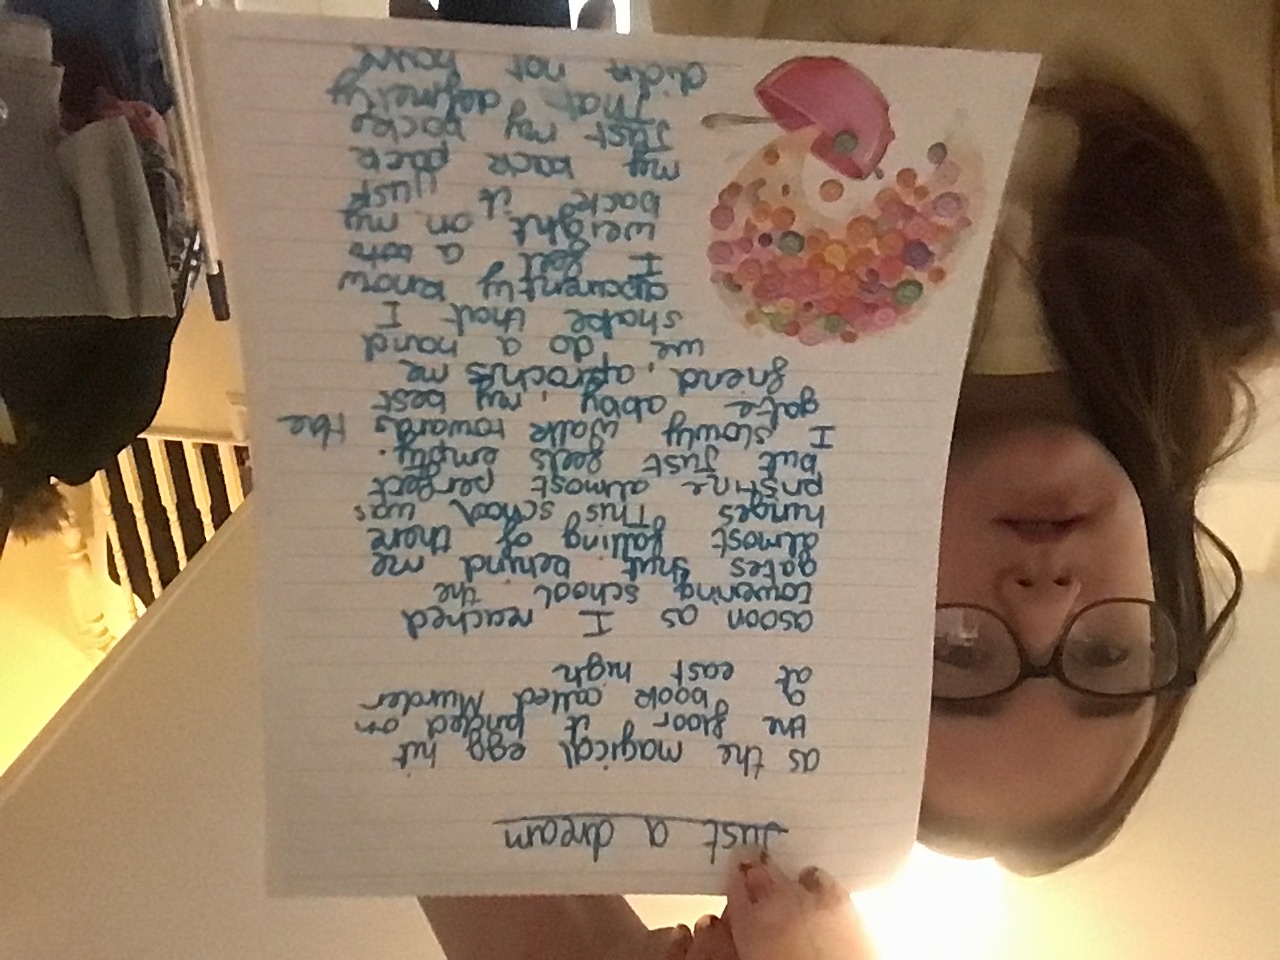 Just a dream
as the magical egg hit
the floor it landed on
a book called Murder
at east high
asoon as I reached
towering school the
gates shut behind me
almost falling of there
hinges This school was
pristine almost perfect
but just feels empty.
I slowly walk towards the
gate abby, my best
friend, aproches me
we do a hand
shake that I
apparently know
I felt a
weight on my
back it just
my back pack
Just my backe
That definetly
didn not have